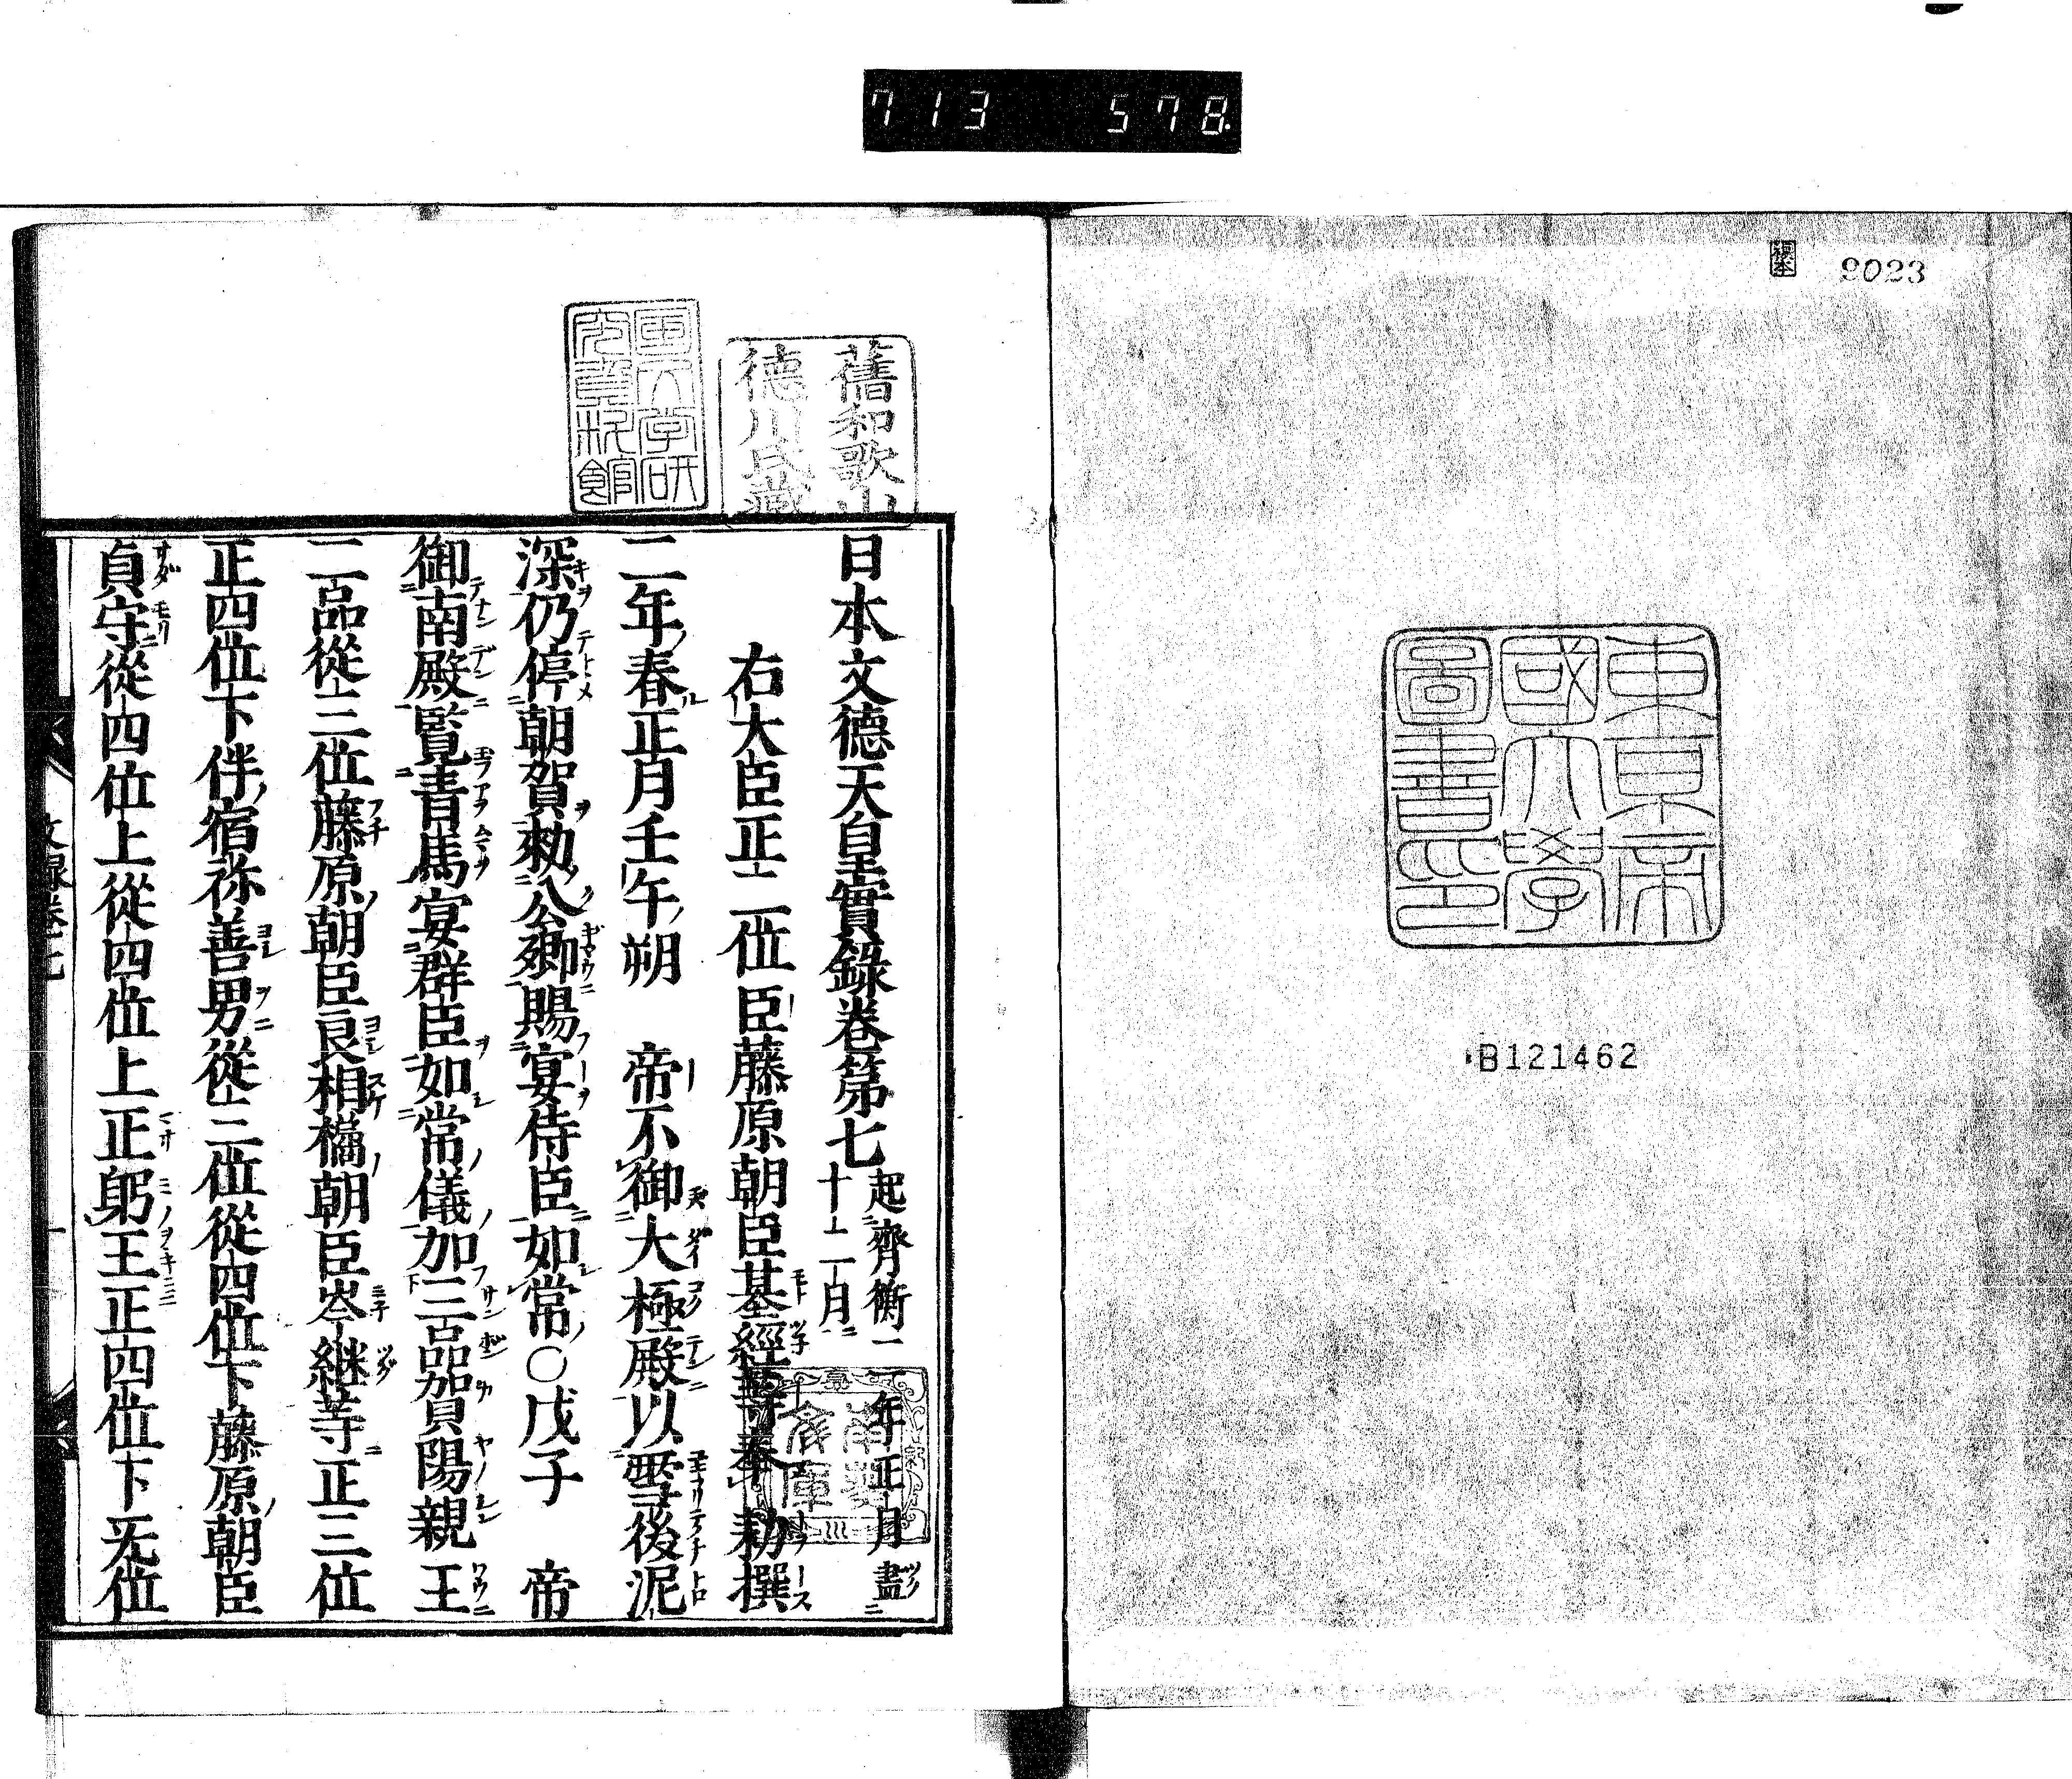 713 578
2023
東京帝
國大學
圖書印
B121462
舊和歌山
德川氏藏
国文学研
究資料館
日本文德天皇實錄卷第七 起齊衡二年正月盡十二月
右大臣正二位臣藤原朝臣基經等奉 勅撰
二年春正月壬午朔 帝不御大極殿以雪後泥
深仍停朝賀勅公卿賜宴侍臣如常○戊子 帝
御南殿覽青馬宴群臣如常儀加三品賀陽親王
二品從三位藤原朝臣良相橘朝臣岑継等正三位
正四位下伴宿祢善男從三位從四位下藤原朝臣
貞守從四位上從四位上正躬王正四位下无位
文録卷七
一